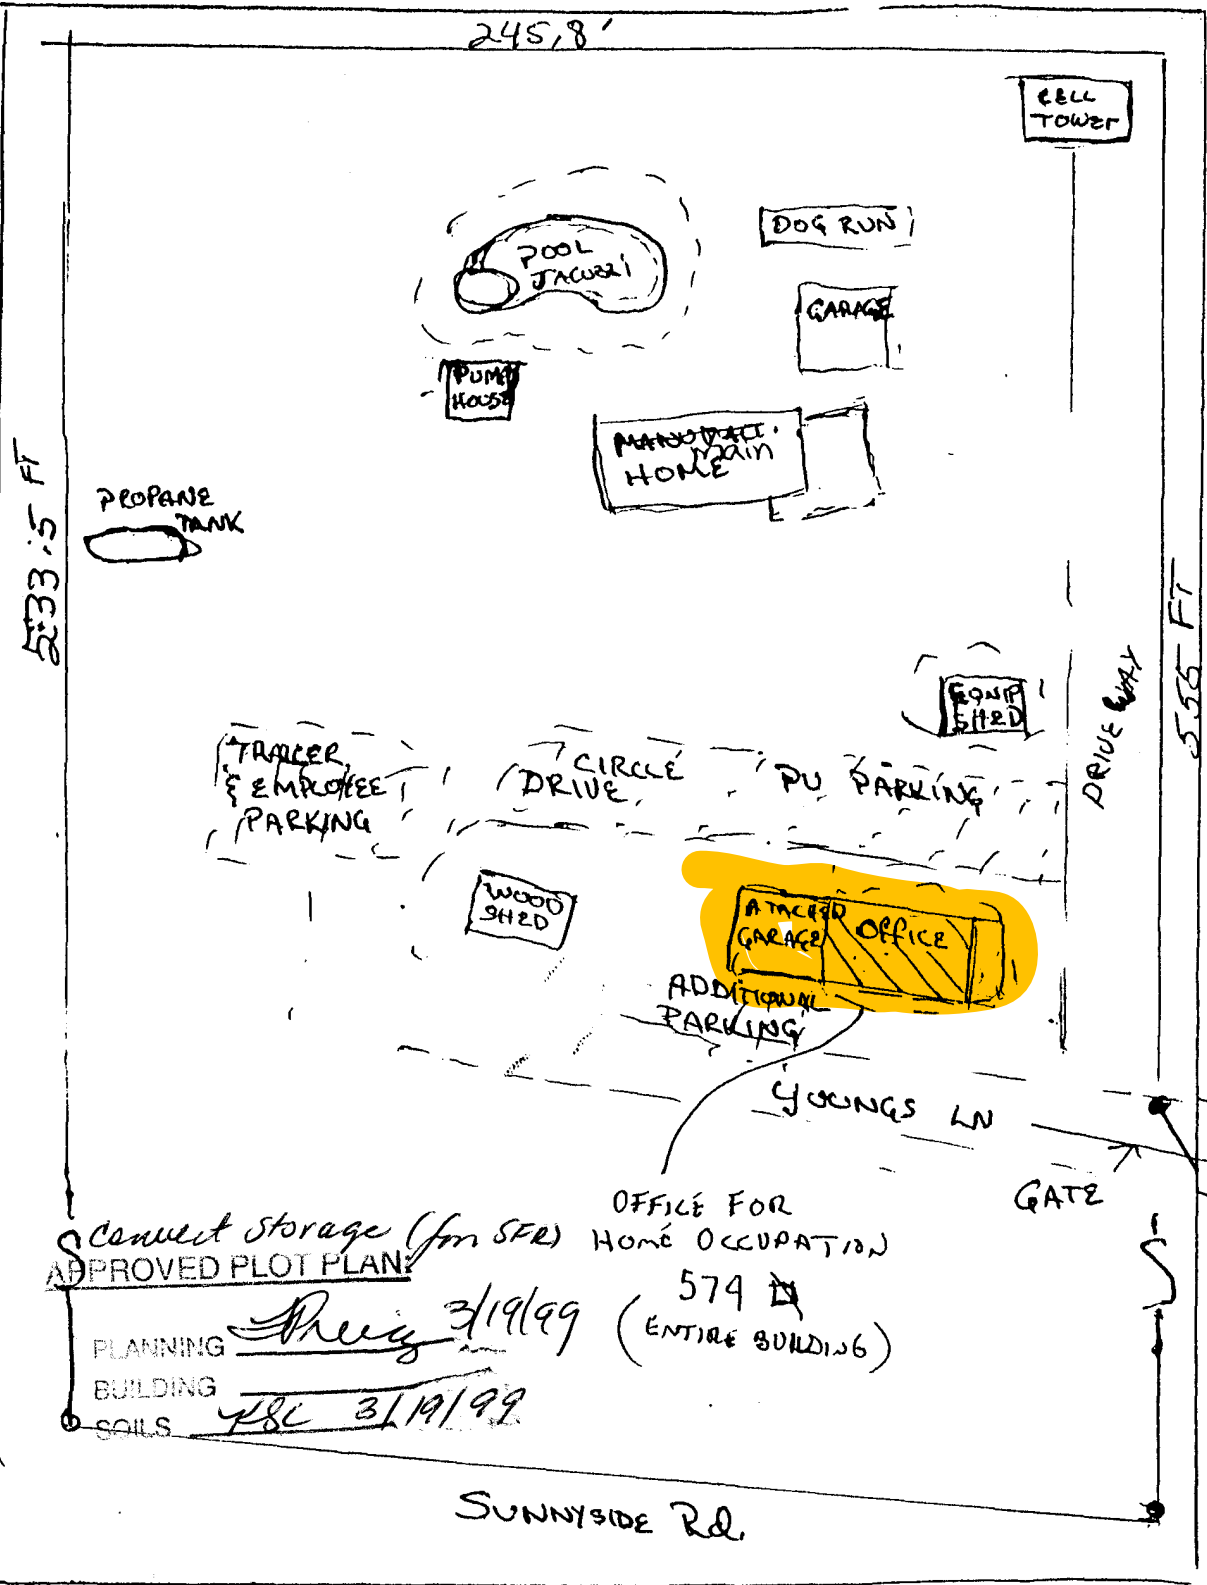 245.8'
CELL
TOWEr
DOG RUN
POOL
JACUZZI
GARAGE
PUMP
HOUSE
MANUFACT.
main
HOME
533.5 FT
PROPANE
TANK
555 FT
EQUIP
SHED
DRIVE WAY
TRAILER
& EMPLOYEE
PARKING
CIRCLE
DRIVE
PU PARKING
WOOD
SHED
ATACHED
GARAGE
OFFICE
ADDITIONAL
PARKING
YOUNGS LN
GATE
OFFICE FOR
HOME OCCUPATION
574
(ENTIRE BUILDING)
Convert Storage (from SFR)
APPROVED PLOT PLAN:
PLANNING 3/19/99
BUILDING
SOILS KSC 3/19/99
SUNNYSIDE Rd.